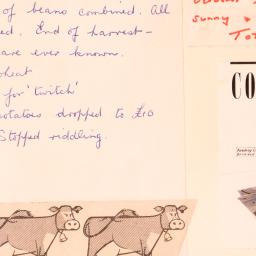 of beans combined. All
ed. End of harvest -
are ever known.
wheat
for 'twitch'
potatoes dropped to £10
Stopped riddling.
sunny &
Tot
CO